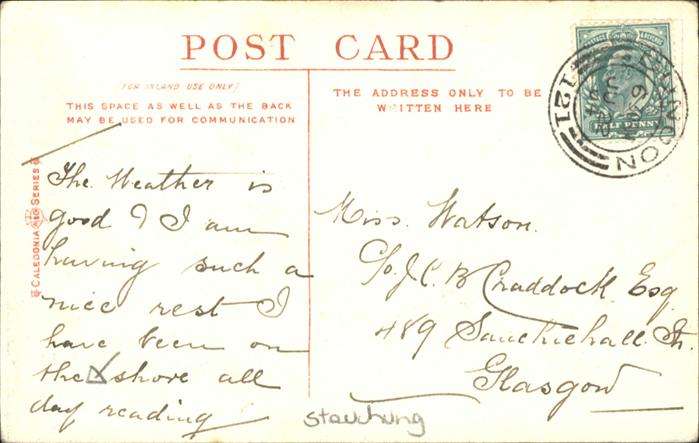 POST CARD
(FOR INLAND USE ONLY)
THIS SPACE AS WELL AS THE BACK
MAY BE USED FOR COMMUNICATION
THE ADDRESS ONLY TO BE
WRITTEN HERE
HALF PENNY
121
CALEDONIA SERIES
The Weather is
good & I am
having such a
nice rest I
have been on
the shore all
day reading
Miss. Watson.
C/o. J. C. B Craddock. Esq
489 Sauchiehall St.
Glasgow